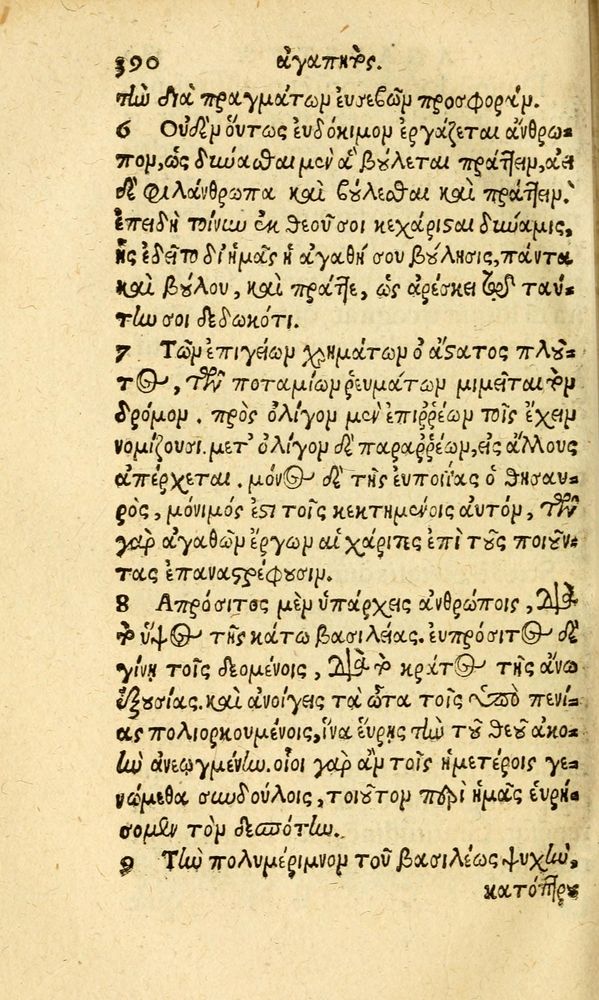 390 ἀγαπητὸς.
τὴν διὰ πραγμάτων εὐσεβῶν προσφοράν.
6 Οὐδὲν ὅυτως ἐυδόκιμον ἐργάζεται ἄνθρω-
πον, ὡς δύναϑαι μὲν ἃ βούλεται πράττειν, ἀεὶ
δὲ φιλάνθρωπα καὶ βούλεϑαι καὶ πράττειν.
ἐπειδὴ τοίνυν ἐκ θεοῦ σοι κεχάρισαι δύναμις,
ἧς ἐδεῖτο δι' ἡμᾶς ἡ ἀγαθή σου βούλησις, πάντα
καὶ βούλου, καὶ πράττε, ὡς ἀρέσκει τῷ ταύ-
την σοι δεδωκότι.
7 Τῶν ἐπιγείων χρημάτων ὁ ἄστατος πλοῦ-
τος, τῶν ποταμίων ῥευμάτων μιμεῖται τὸν
δρόμον. πρὸς ὀλίγον μὲν ἐπιρρέων τοῖς ἔχειν
νομίζουσι. μετ' ὀλίγον δὲ παραρρέων, εἰς ἄλλους
ἀπέρχεται. μόνος δὲ τῆς ἐυποιΐας ὁ θησαυ-
ρὸς, μόνιμός ἐστι τοῖς κεκτημένοις αὐτόν, τῶν
γὰρ ἀγαθῶν ἔργων αἱ χάριτες ἐπὶ τοὺς ποιοῦν-
τας ἐπαναστρέφουσιν.
8 Απρόσιτος μὲν ὑπάρχεις ἀνθρώποις, διὰ
τὸ ὕψος τῆς κάτω βασιλείας. ἐυπρόσιτος δὲ
γίνῃ τοῖς δεομένοις, διὰ τὸ κράτος τῆς ἄνω
ἐξουσίας. καὶ ἀνοίγεις τὰ ὦτα τοῖς ὑπὸ πενί-
ας πολιορκουμένοις, ἵνα ἕυρῃς τὴν τοῦ θεοῦ ἀκο-
ὴν ἀνεῳγμένην. οἷοι γὰρ ἂν τοῖς ἡμετέροις γε-
νώμεθα συνδούλοις, τοιοῦτον περὶ ἡμᾶς ἑυρή-
σομεν τὸν δεσπότην.
9 Τὴν πολυμέριμνον τοῦ βασιλέως ψυχὴν,
κατόπτρου